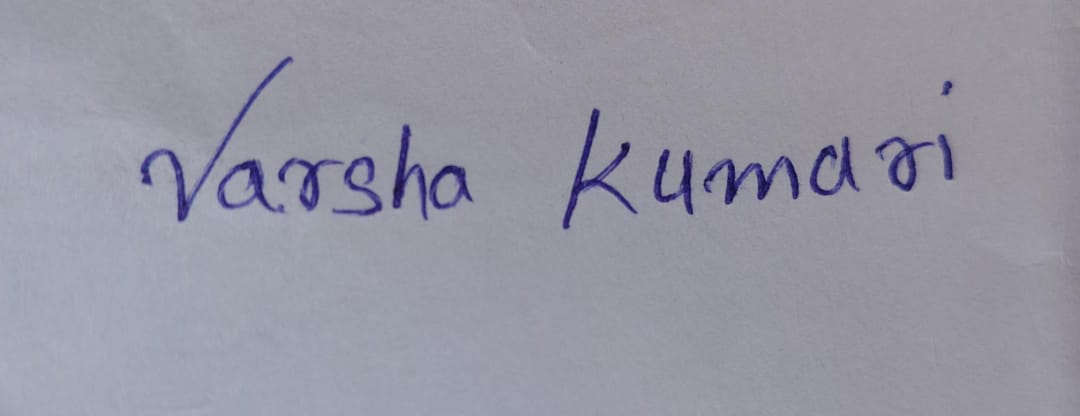 Varsha Kumari